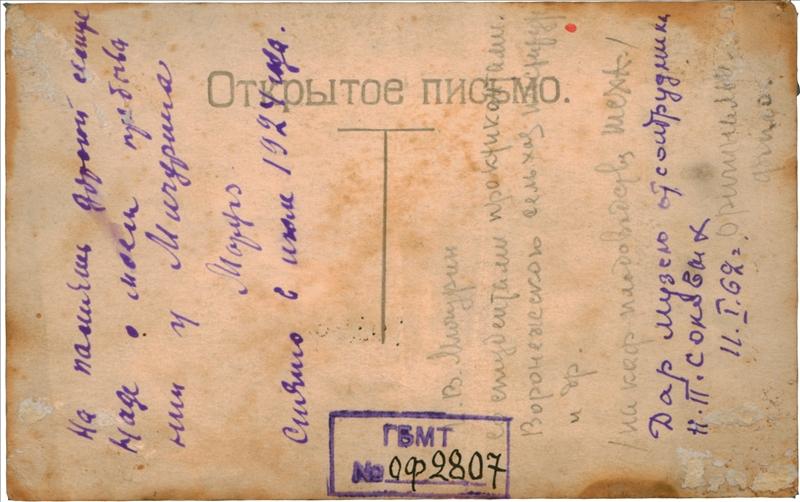 Открытое письмо.
На память дорогой сестре
Наде о моем пребыва
нии у Мичурина
Маруся
Снято в июле 1924 года.
В. Мичурин
со студентами практикантами
Воронежского сельхоз
и др.
/на каф плодоводства
Дар музею от сотрудника
Н.П. Соковых
11.I.62 г.
Оригинал
фото.
ГБМТ
№ оф2807